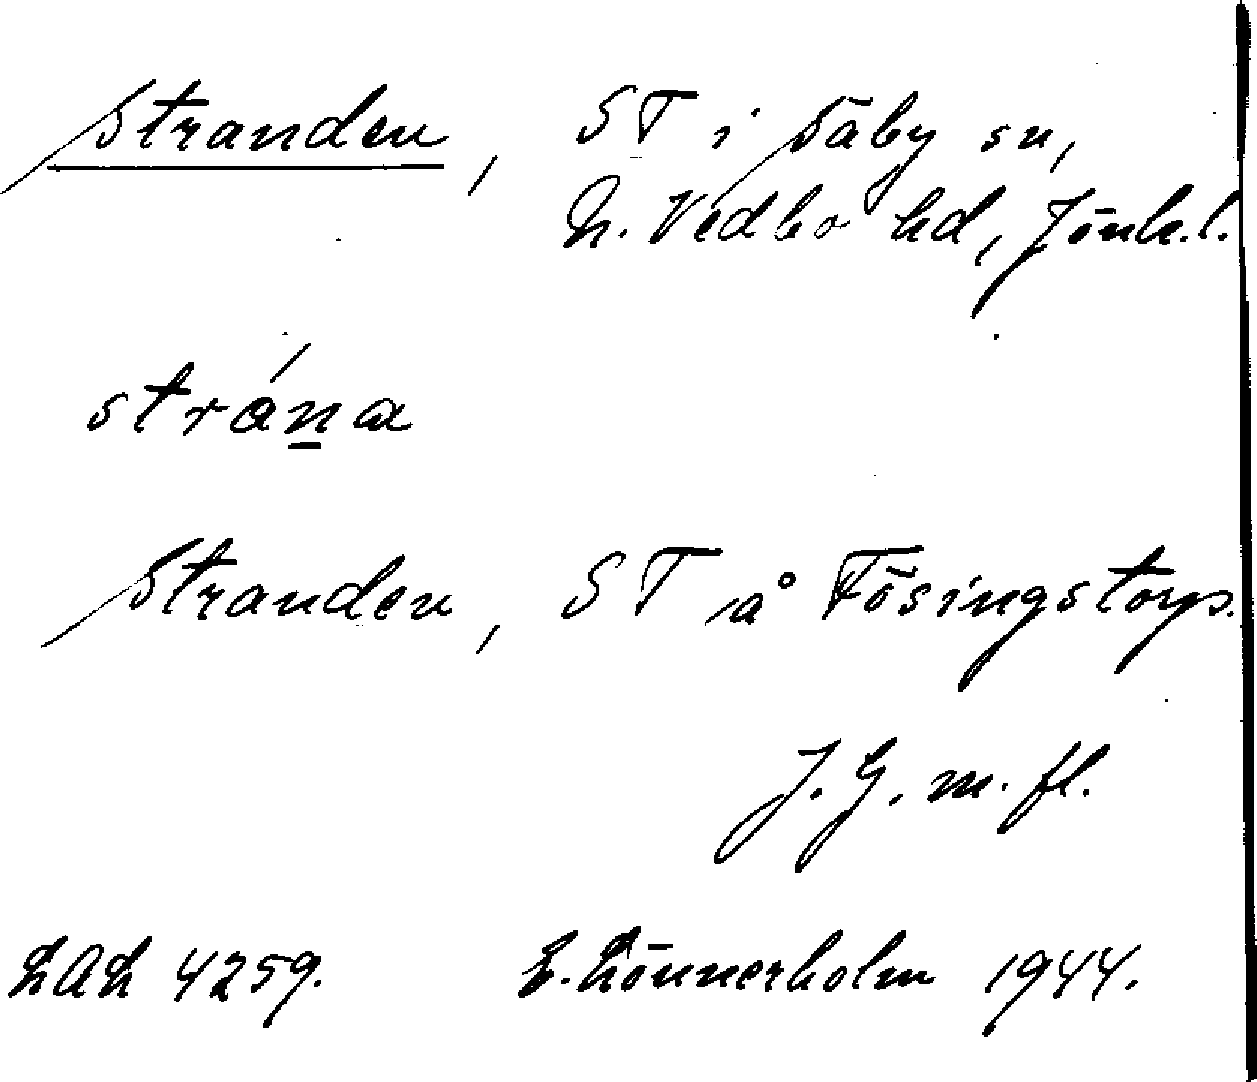 Stranden, ST i Säby sn,
N. Vedbo hd, Jönk.l.
strána
Stranden, ST å Fösingstorp.
J. G. m. fl.
LAL 4259. E. Lönnerholm 1944.